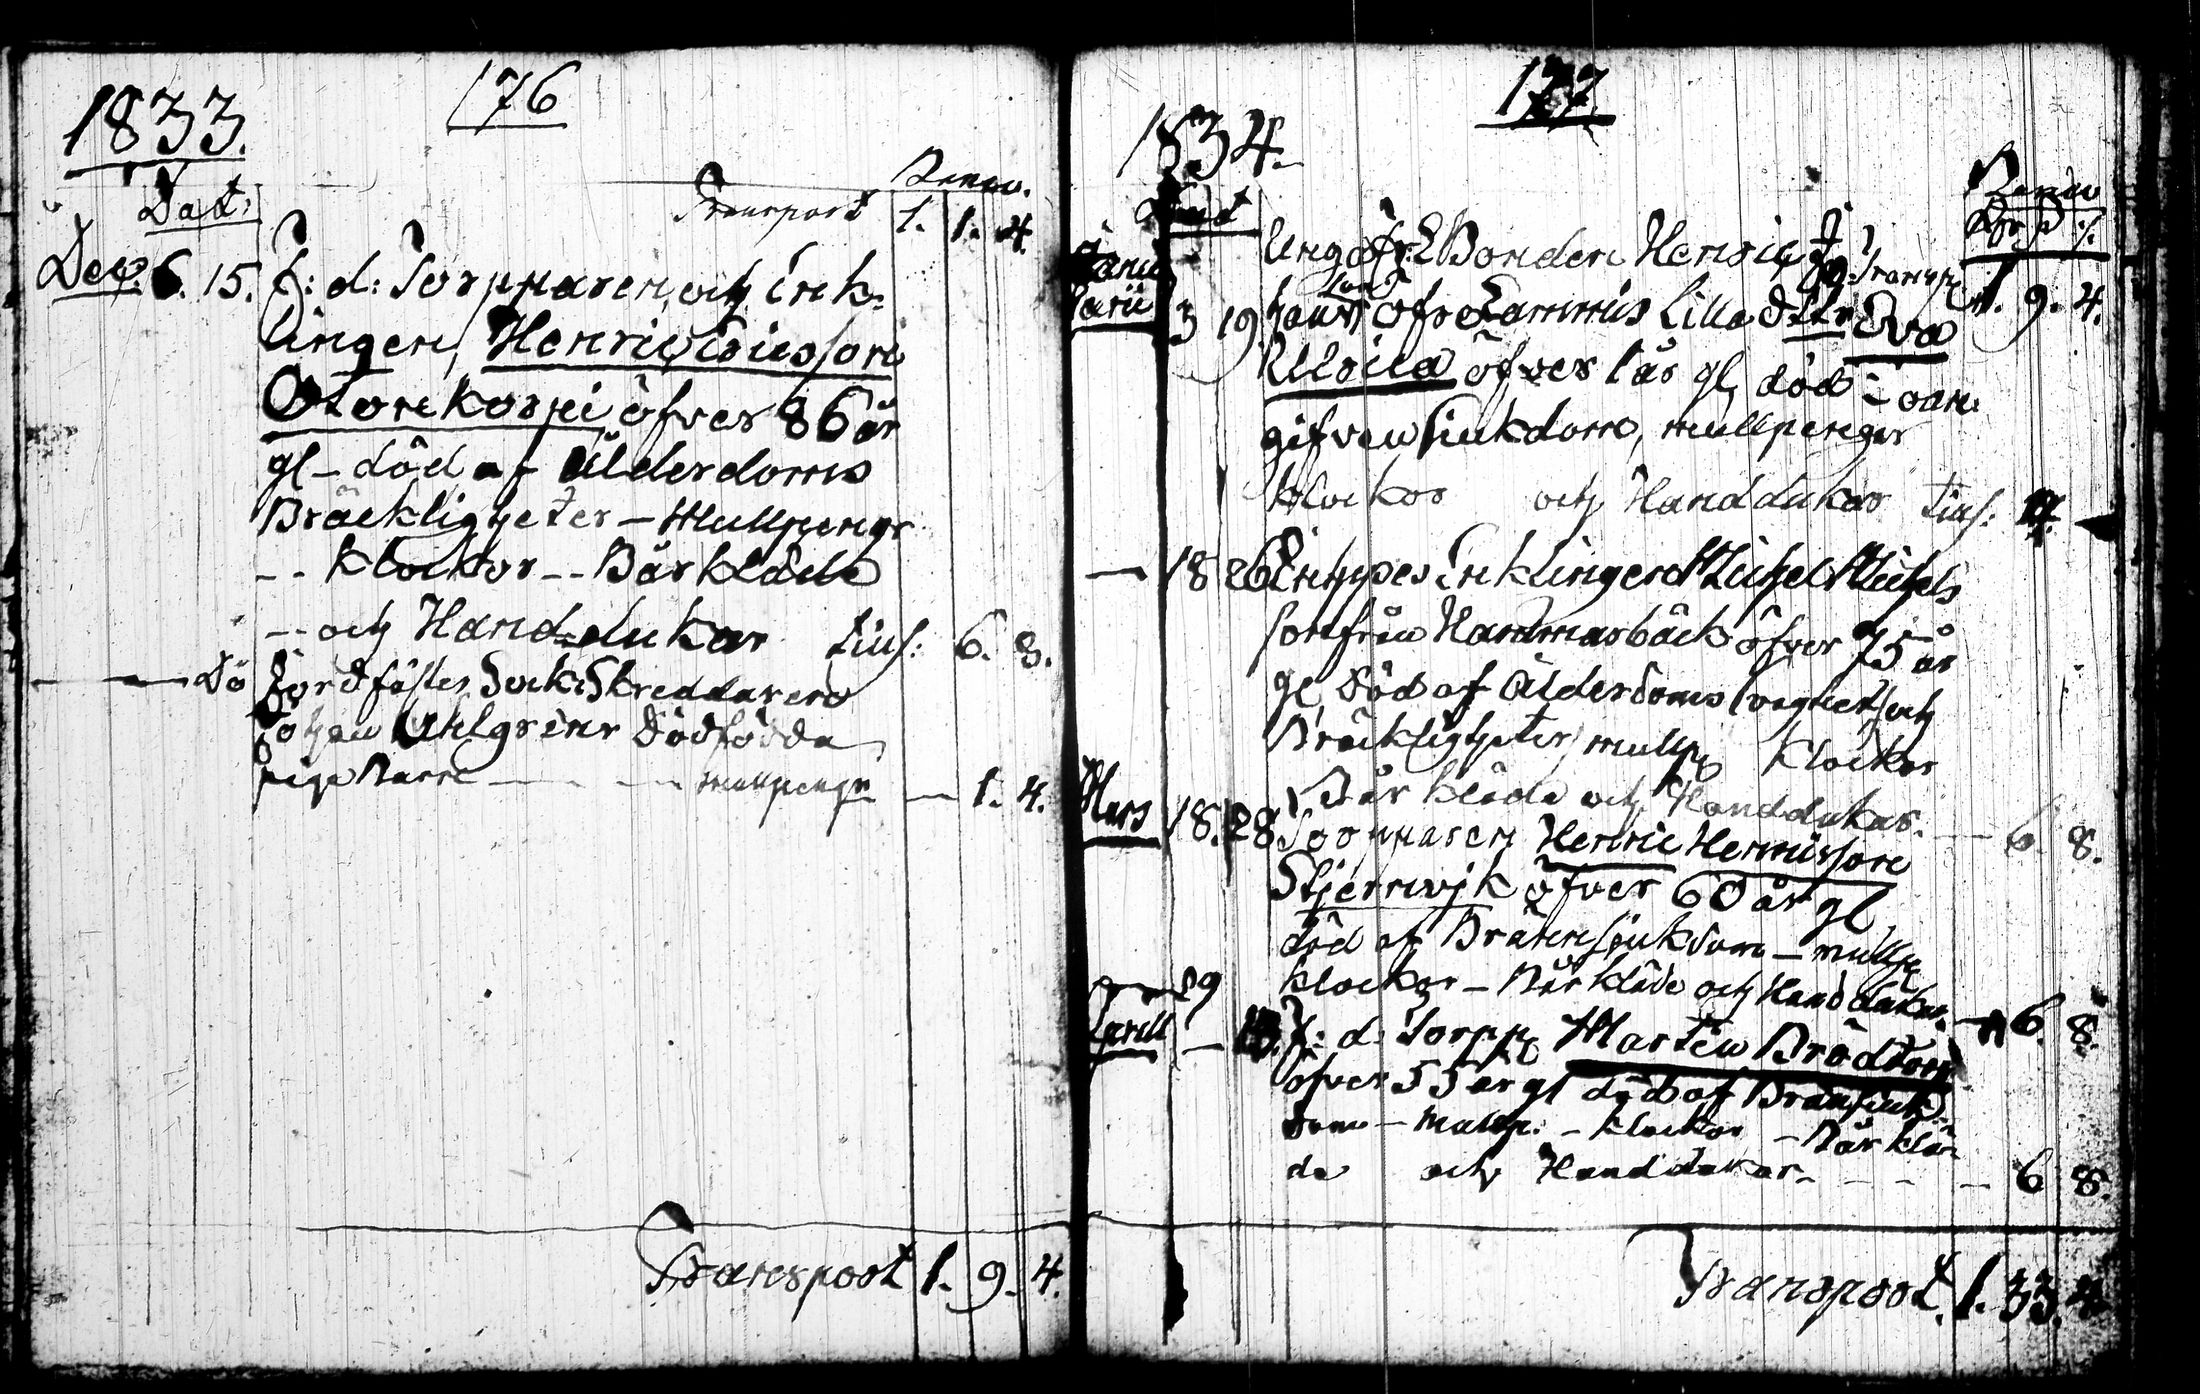 176
1833.
Dat:
Banco.
Transport 1. 1. 4.
Dec. 6. 15. F: d: Torpparen och Ink-
lingen, Henric Ericsson
Storekorpi öfver 86 år
gl – död af Ålderdoms
Bräckligheter – Mullpengr
-- Klockor -- Bårkläde
-- och Hand-dukar tills: 6. 8.
— Do Jordfästes Sock: Skreddaren
Johan Ahlgrens Dödfödda
piga Barn — — — mullpengr — 1. 4.
Transport 1. 9. 4.
177
1834.
Banco
Dat
Unga Bonden Henric
Transp 1. 9. 4.
Janu
arii 3 19 Lammis Lilla Dttr Eva
Ulrica öfver 1 år gl, död – oan-
gifven Siukdom, mullpengar
Klockor och Handdukar tills:
— 18 26 Inklingen Michel Michels
son från Hammarbäck öfver 75 år
gl, Död af Ålderdoms svaghet, och
Bräckligheter, mullp Klockor
Bårkläde och Handdukar. — 6. 8.
Mars 18. 28 Torpparen Henric Henricsson
Stjernvjk öfver 60 år gl
död af Bränsiukdom – mullp
Klockor – Bårkläde och Handdukar. — 6. 8.
29
Aprill — F: d: Torpp Mårten Brödtorp
öfver 55 år gl död af Bränsiuk-
dom – mullp. – Klockor – Bårklä-
de och Handdukar. - - - 6 8.
Transport. 1. 33. 4.